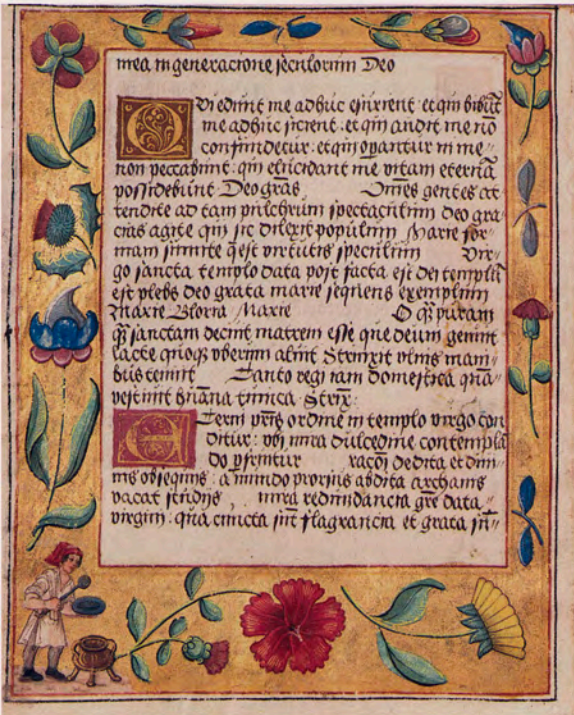 mea in generacione seculorum Deo
Qui edunt me adhuc esurient et qui bibūt
me adhuc sicient. et qui audit me nō
confundetur: et qui operantur in me
non peccabunt: qui elucidant me vitam eternā
possidebunt Deo grās Omnes gentes at
tendite ad tam pulchrum spectaculum deo gra
cias agite qui sic dilexit populum Marie for
mam sumite q̄ est virtutis speculum Vir
go sancta templo data post facta est dei templū
est plebs deo grata marie sequens exemplum
Marie Gloria Marie O q̄ puram
q̄ sanctam decuit matrem esse que deum genuit
lacte quoq̄ uberum aluit Strinxit ulnis mani
bus tenuit Tanto regi tam domestica quā
vestiuit humana tunica Strinx:
Eterni pr̄is ordine in templo virgo con
ditur: ubi mira dulcedine contemplā
do pfruitur rac̄oi dedita et diui
nis obsequijs a mundo prorsus abdita archanis
vacat studijs mira redundancia gr̄e data
virgini: qua cuncta sūt flagrancia et grata su